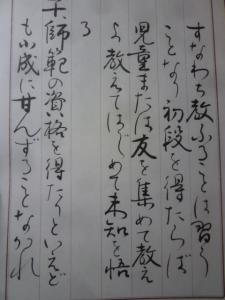 すなわち教ふることは習う
ことなり初段を得たらば
児童または友を集めて教え
よ教えてはじめて未知を悟
る
木師範の資格を得たりといえど
も小成に甘んずることなかれ